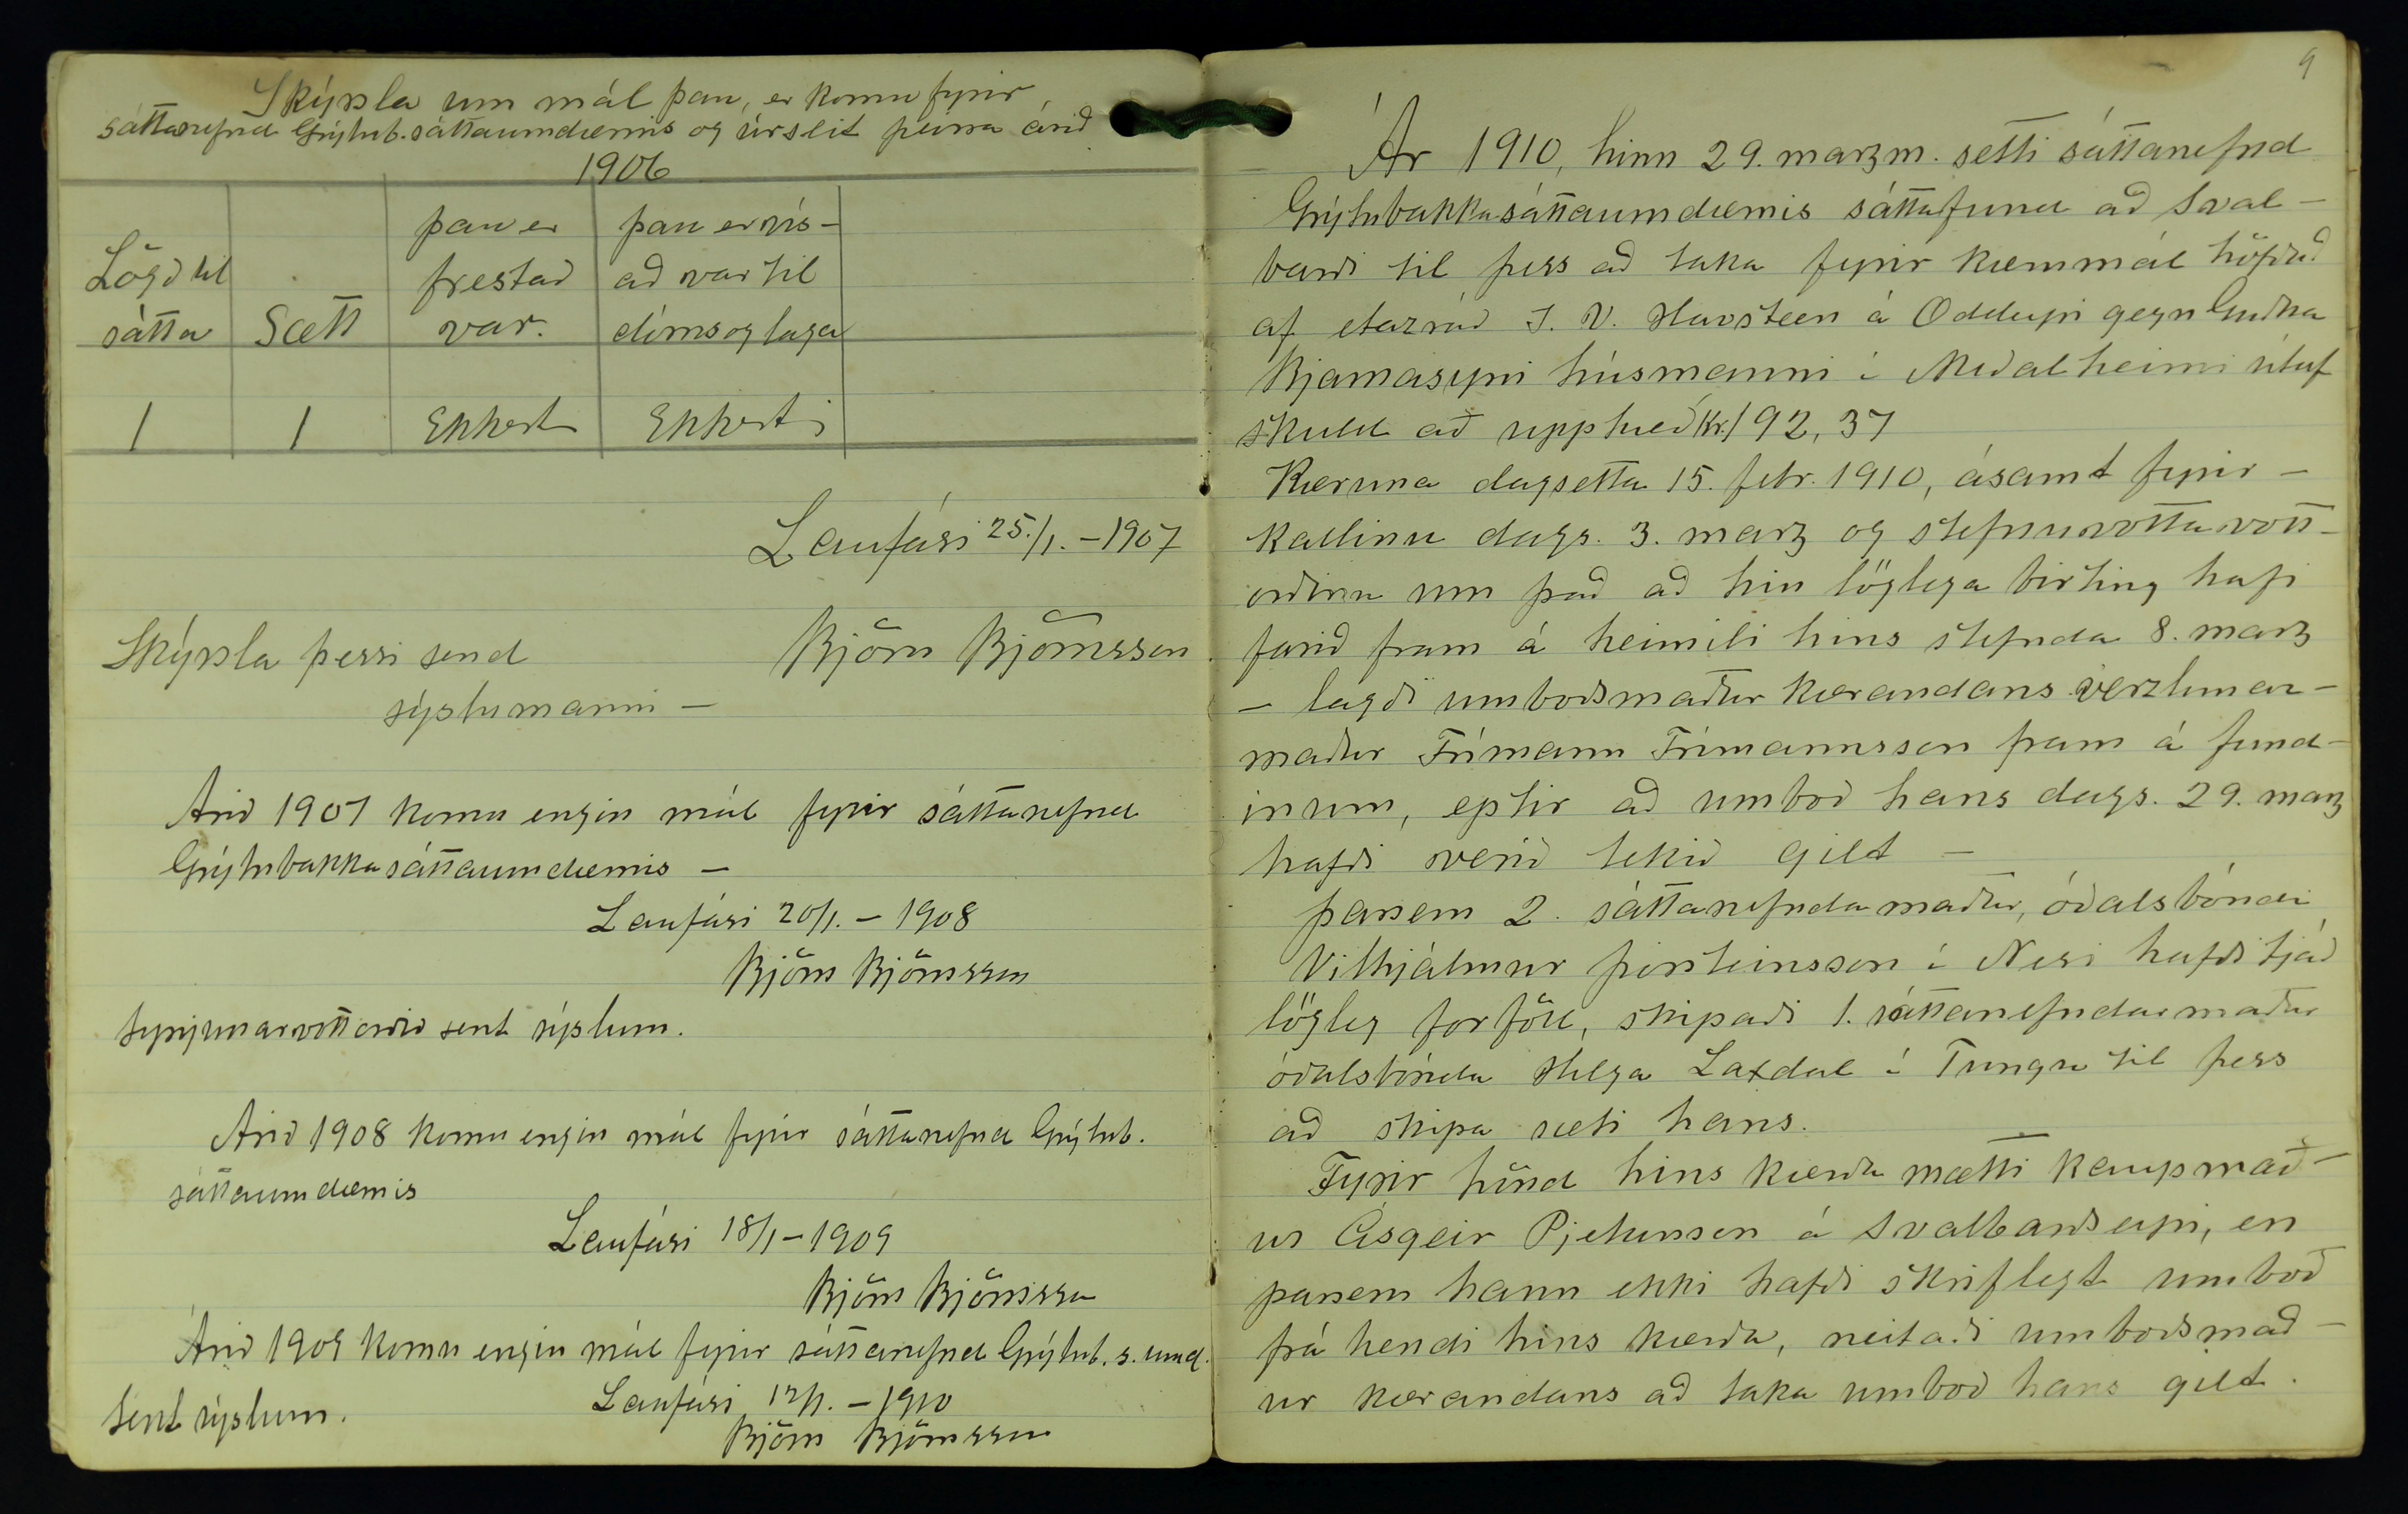 Skýrsla um mál þau, er komu fyrir
sáttanefnd Grýtub. sáttaumdæmis og úrslit þeirra árið
1906
Lögð til sátta | Sætt | þau er frestað var. | þau er vís-að var til dóms og laga
1 | 1 | Ekkert | Ekkert
Laufási 25./1. - 1907
Björn Björnsson
Skýrsla þessi send
sýslumanni -
Árið 1907 komu engin mál fyrir sáttanefnd
Grýtubakkasáttaumdæmis -
Laufási 20/1. - 1908
Björn Björnsson
Synjunarvottorðið sent sýslum.
Árið 1908 komu engin mál fyrir sáttanefnd Grýtub.
sáttaumdæmis
Laufási 18/1 - 1909
Björn Björnsson
Árið 1909 komu engin mál fyrir sáttanefnd Grýtub. s. umd.
Laufási 12/1. - 1910
Sent sýslum.
Björn Björnsson
9
Ár 1910, hinn 29. marzm. setti sáttanefnd
Grýtubakkasáttaumdæmis sáttafund að Sval-
barði til þess að taka fyrir kærumál höfðað
af etazráð J. V. Havsteen á Oddeyri gegn Guðna
Bjarnasyni húsmanni í Meðalheimi útaf
skuld að upphæð kr. 192,37
Kæruna dagsetta 15. febr. 1910, ásamt fyrir-
kallinu dags. 3. marz og stefnuvottavott-
orðinu um það að hin löglega birting hafi
farið fram á heimili hins stefnda 8. marz
- lagði umboðsmaður kærandans verzlunar-
maður Frímann Frímannsson fram á fund-
inum, eptir að umboð hans dags. 29. marz
hafði verið tekið gilt -
Þarsem 2. sáttanefndamaður, óðalsbóndi
Vilhjálmur Þorsteinsson í Nesi hafði tjáð
lögleg forföll, skipaði 1. sáttanefndarmaður
óðalsbónda Helga Laxdal í Tungu til þess
að skipa sæti hans.
Fyrir hönd hins kærða mætti kaupmað-
ur Ásgeir Pjetursson á Svalbarðseyri, en
þarsem hann ekki hafði skriflegt umboð
frá hendi hins kærða, neitaði umboðsmað-
ur kærandans að taka umboð hans gilt.